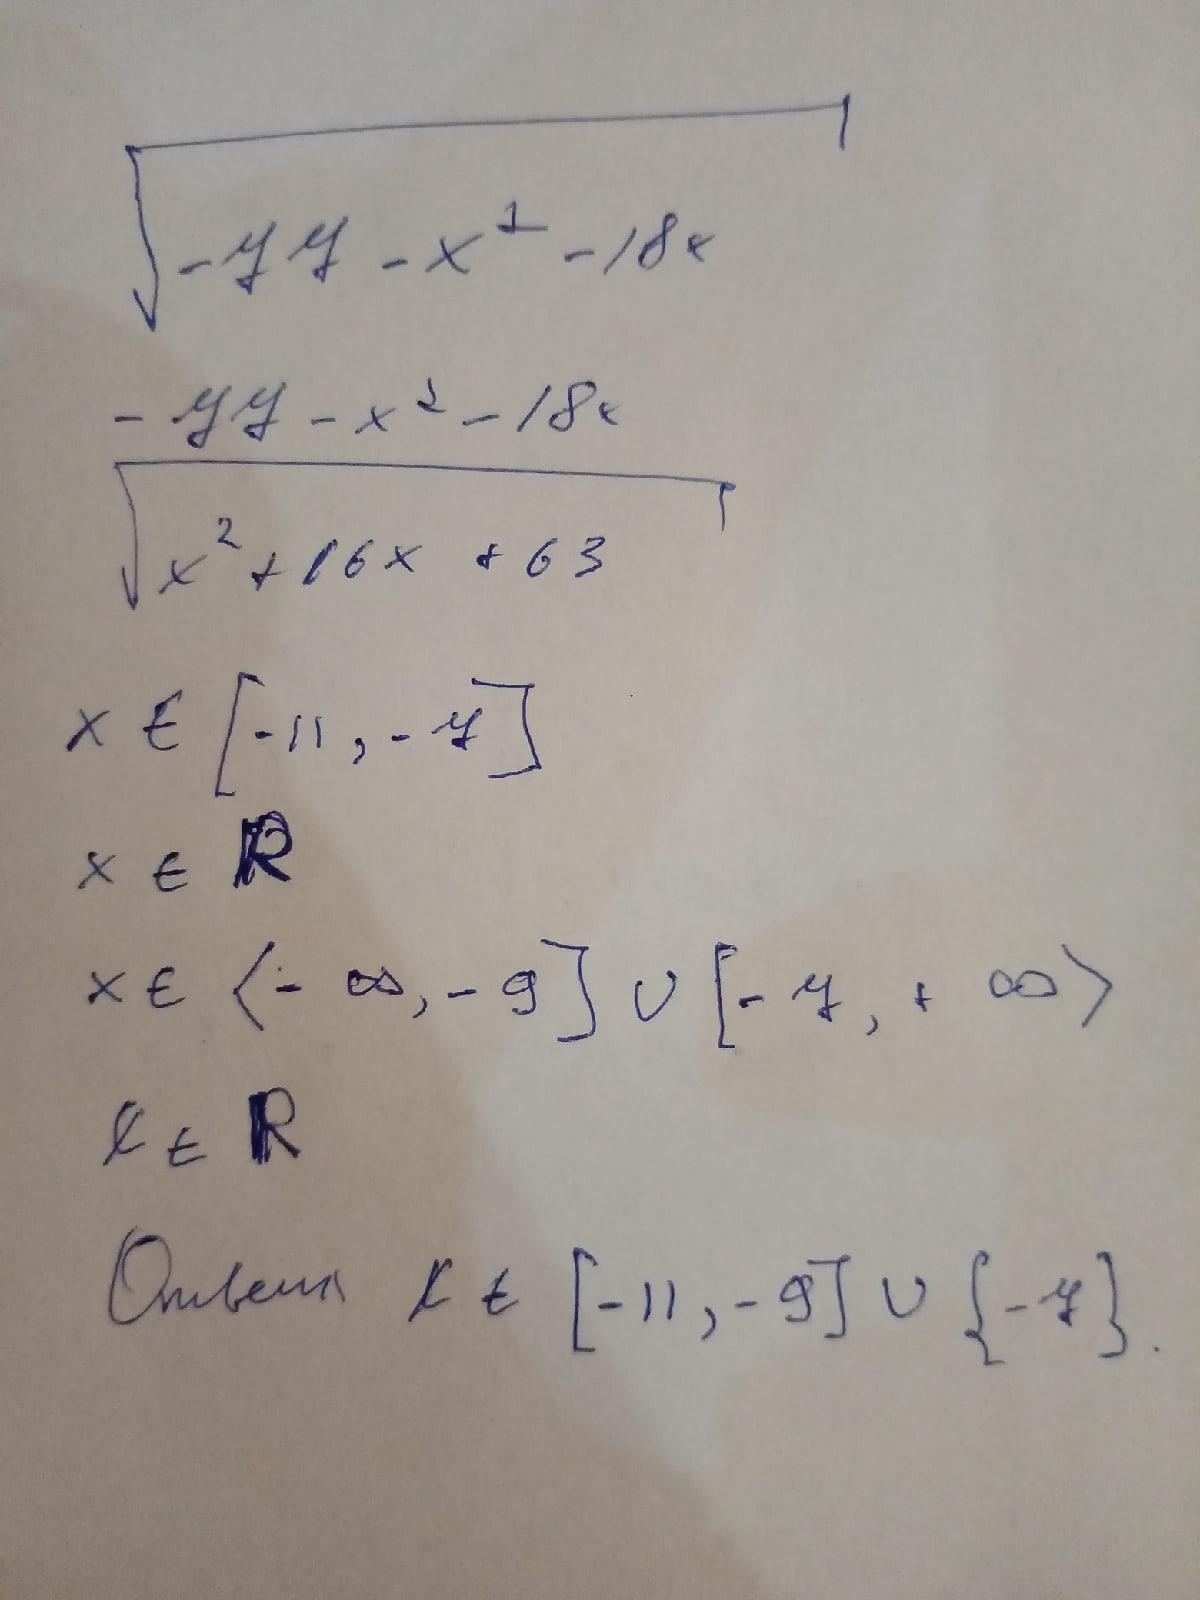 √-77 - x² - 18x
- 77 - x² - 18x
√x² + 16x + 63
x ∈ [-11, -7]
x ∈ R
x ∈ <- ∞, - 9] ∪ [- 7, + ∞>
x ∈ R
Ответ x ∈ [-11, -9] ∪ {-7}.